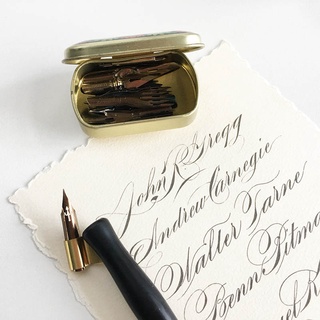 John R Gregg
Andrew Carnegie
Walter Tarne
Benn Pitma